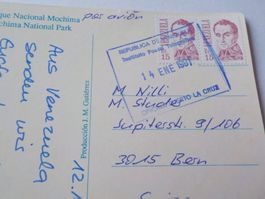 que Nacional Mochima
Mochima National Park
par avión
VENEZUELA
15
15
REPUBLICA DE
Instituto Postal
14 ENE
PUERTO LA CRUZ
Producción J. M. Gutiérrez
Aus Venezuela
senden wir
12.1
M. Nilli
M. Studer
Jupiterstr. 9/106
3015 Bern